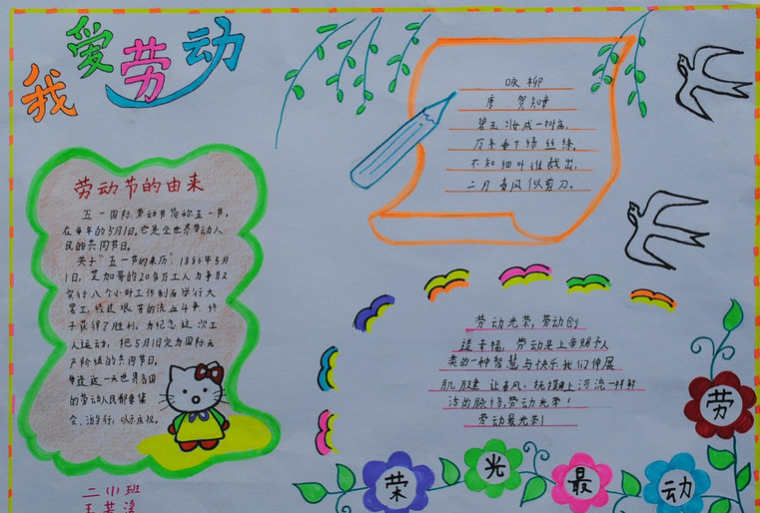 我爱劳动
劳动节的由来
五一国际劳动节简称五一节，
在每年的5月1日。它是全世界劳动人
民的共同节日。
关于“五一节的来历”：1886年5月
1日，芝加哥的20多万工人为争取
实行八个小时工作制而举行大
罢工，经过艰苦的流血斗争，终
于获得了胜利。为纪念这次工
人运动，把5月1日定为国际无
产阶级的共同节日。
每逢这一天世界各国
的劳动人民都要集
会、游行，以示庆祝。
二（1）班
咏柳
唐 贺知章
碧玉妆成一树高，
万条垂下绿丝绦。
不知细叶谁裁出，
二月春风似剪刀。
劳动光荣，劳动创
造幸福，劳动是上帝赐予人
类的一种智慧与快乐我们伸展
肌腱 让春风，抚摸 河流一样
的脉络，劳动光荣！
劳动最光荣！
劳
动
最
光
荣